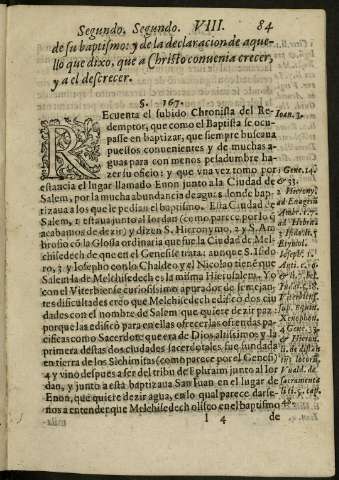 Segundo. Segundo. VIII. 84
de su baptismo: y de la declaracion de aque-
llo que dixo, que a Christo conuenia crecer,
y a el descrecer.
§. 167.
REcuenta el subido Chronista del Re-
demptor, que como el Baptista se ocu-
passe en baptizar, que siempre buscaua
puestos conuenientes y de muchas a-
guas para con menos pesadumbre ha-
zer su oficio: y que vna vez tomo por
estancia el lugar llamado Enon junto a la Ciudad de
Salem, por la mucha abundancia de agua: a donde bap-
tizaua a los que le pedian el baptismo. Esta Ciudad de
Salem, estaua junto al Iordan (como parece por lo q̃
acabamos de dezir) y dizen S. Hieronymo, 2 y S. Am-
brosio cõ la Glossa ordinaria que fue la Ciudad de Mel-
chisedech de que en el Genesis se trata: aunque S. Isido
ro, 3 y Iosepho con lo Chaldeo y el Nicolao tiene que
Salem la de Melchisedech es la misma Ierusalem. Y o
con el Viterbiense curiosissimo apurador de semejan-
tes dificultades creo que Melchisedech edificò dos ciu
dades con el nombre de Salem que quiere dezir paz:
porque las edificò para en ellas ofrecer las ofrendas pa-
cificas como Sacerdote que era de Dios altissimo: y la
primera destas dos ciudades sacerdotales fue fundada
en tierra de los Sichimitas (como parece por el Genesi)
4 y vino despues a ser del tribu de Ephraim junto al Ior
dan, y junto a esta baptizaua San Iuan en el lugar de
Enon, que quiere dezir agua, en lo qual parece darse-
nos a entender que Melchisedech olisco en el baptismo
I 4 de
Ioan. 3.
1 Gene. 14.
& 33.
2 Hierony.
ad Euagriũ
Ambr. l. 7.
3 Isido. l.
Etymol.
Iosephi. l.
Anti. c.
Iudai. c. 18.
Viterbiens.
Xenophon.
4 Gene. 33.
& Hieron.
Vuald. de
sacramenta